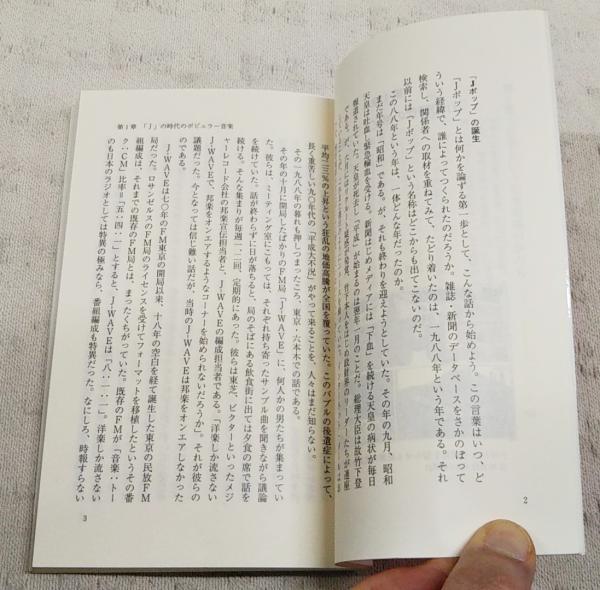 「Jポップ」の誕生
「Jポップ」とは何かを論ずる第一歩として、こんな話から始めよう。この言葉はいつ、ど
ういう経緯で、誰によってつくられたのだろうか。雑誌・新聞のデータベースをさかのぼって
検索し、関係者への取材を重ねてみて、たどり着いたのは、一九八八年という年である。それ
以前には「Jポップ」という名称はどこからも出てこないのだ。
この八八年という年は、一体どんな年だったのか。
まだ年号は「昭和」である。が、それも終わりを迎えようとしていた。その年の九月、昭和
天皇は吐血し緊急輸血を受ける。新聞はじめメディアには「下血」を続ける天皇の病状が毎日
報道されていた。天皇が死去し「平成」が始まるのは翌年一月のことだ。総理大臣は故竹下登
2
第1章 「J」の時代のポピュラー音楽
平均二三%の上昇という狂乱の地価高騰が全国を覆っていた。このバブルの後遺症によって、
長く重苦しい九〇年代の「平成大不況」がやって来ることを、人々はまだ知らない。
その一九八八年の暮れも押しつまったころ、東京・六本木での話である。
その年の十月に開局したばかりのFM局「J-WAVE」に、何人かの男たちが集まってい
た。彼らは、ミーティング室にこもっては、それぞれ持ち寄ったサンプル曲を聞きながら議論
を続けていた。話が終わらずに日が落ちると、局のそばにある飲食街に出ては夕食の席で話を
続ける。そんな集まりが毎週一、二回、定期的にあった。彼らは東芝、ビクターといったメジ
ャーレコード会社の邦楽宣伝担当者と、J-WAVEの編成担当者である。「洋楽しか流さない
J-WAVEで、邦楽をオンエアするようなコーナーを始められないだろうか」。それが彼らの
議題だった。今となっては信じ難い話だが、当時のJ-WAVEは邦楽をオンエアしなかった
のである。
J-WAVEは七〇年のFM東京の開局以来、十八年の空白を経て誕生した東京の民放FM
局だった。ロサンゼルスのFM局のライセンスを受けてフォーマットを移植したというその番
組編成は、それまでの既存のFM局とは、まったくちがっていた。既存のFMが「音楽・・トー
ク・・CM」比率=「五・・四・・一」とすると、J-WAVEは「八・・一・・一」。洋楽しか流さない
のも日本のラジオとしては特異の極みなら、番組編成も特異だった。なにしろ、時報すらない
3